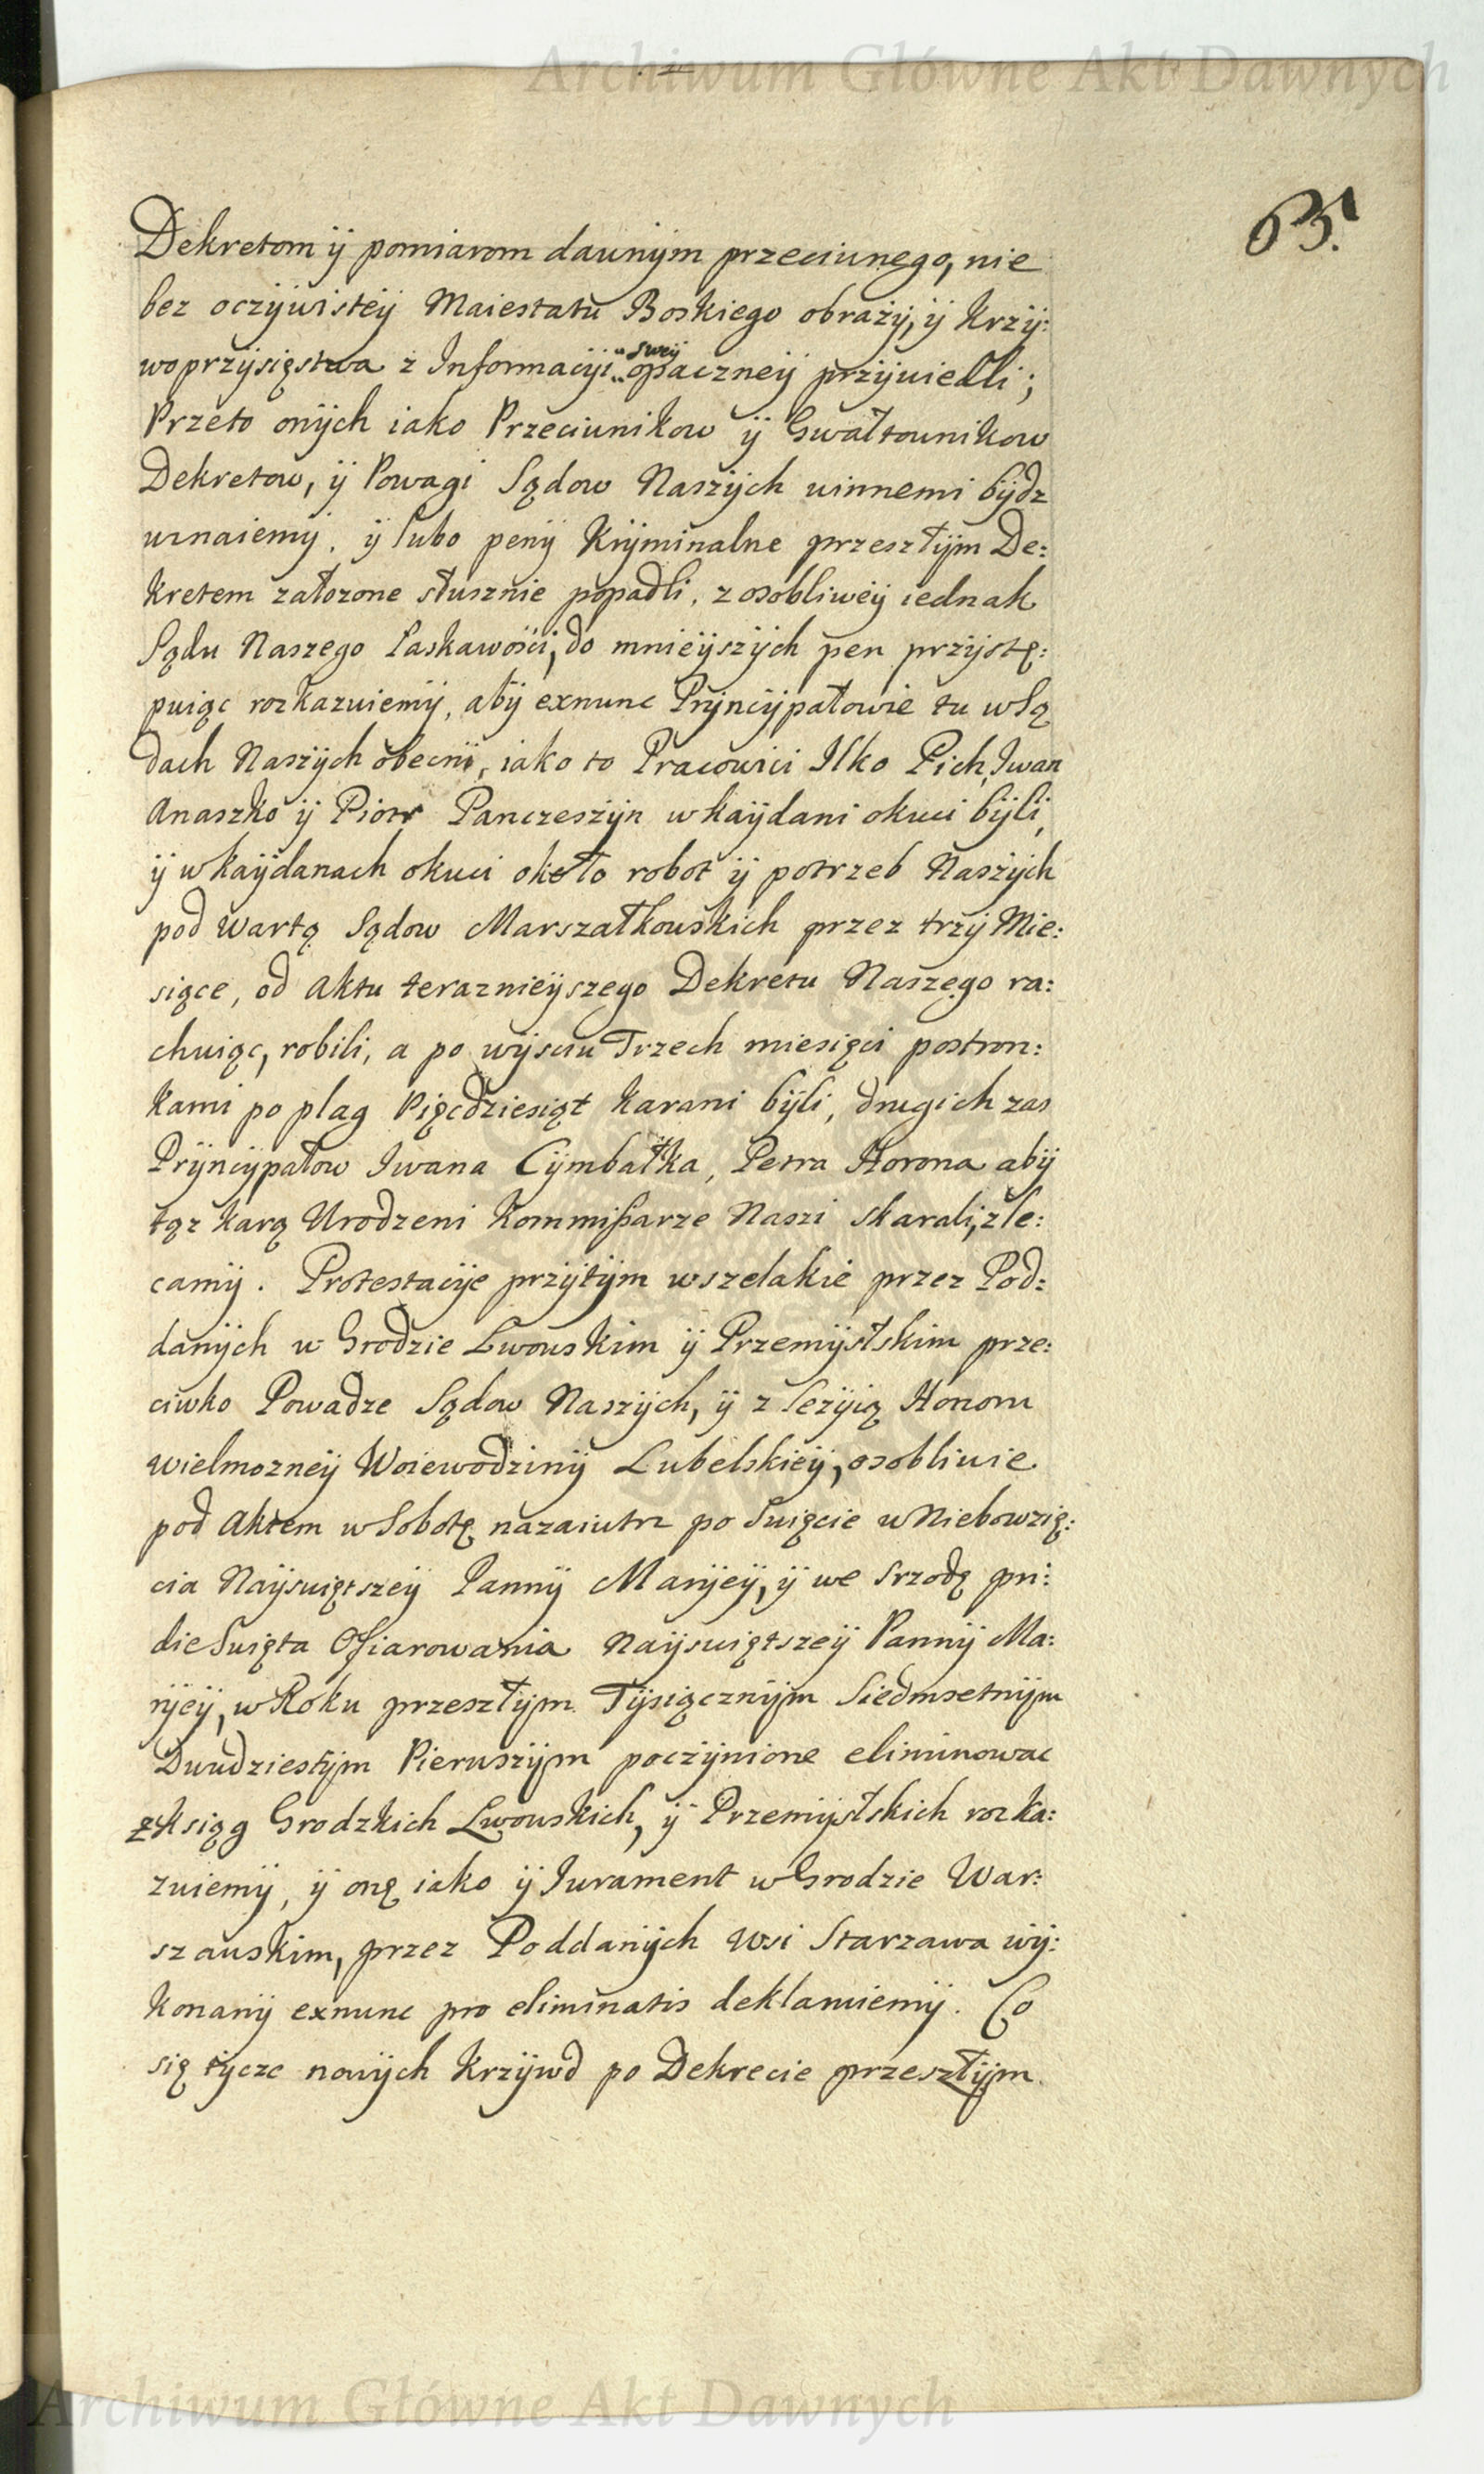 Archiwum Główne Akt Dawnych
63.
Dekretom ÿ pomiarom dawnÿm przeciwnego, nie
bez oczÿwistèÿ Maiestatu Boskiego obrazÿ, ÿ Krzÿ:
woprzÿsięstwa z Informacÿi sweÿ opaczneÿ przÿwiedli;
Przeto onÿch iako Przeciwnikow ÿ Gwałtownikow
Dekretow, ÿ Powagi Sądow Naszÿch winnemi bÿdz
uznaiemÿ. ÿ lubo penÿ Krÿminalne przeszłÿm De:
kretem założone słusznie popadli, z osobliweÿ iednak
Sądu Naszego Łaskawości, do mnieÿszÿch pen przÿstę:
puiąc rozkazuiemÿ, abÿ exnunc Prÿncÿpałowie tu w Są
dach Naszÿch obecni, iako to Pracowici Ilko Pich, Iwan
Anaszko ÿ Piotr Panczeszÿn w kaÿdani okuci bÿli,
ÿ w kaÿdanach okuci około robot ÿ potrzeb Naszÿch
pod Wartą Sądow Marszałkowskich przez trzÿ Mie:
siące, od Aktu teraznieÿszego Dekretu Naszego ra:
chuiąc, robili, a po wÿsciu Trzech miesięci postron:
kami po plag Pięcdziesiąt karani bÿli, drugich zas
Prÿncÿpałow Iwana Cÿmbałka, Petra Horona abÿ
tąz karą Urodzeni Kommißarze Naszi skarali, zle:
camÿ. Protestacÿe przÿtÿm wszelakie przez Pod:
danÿch w Grodzie Lwowskim ÿ Przemÿslskim prze:
ciwko Powadze Sądow Naszÿch, ÿ z lezÿią Honoru
wielmozneÿ Woiewodzinÿ Lubelskieÿ, osobliwie
pod Aktem w Sobotę nazaiutrz po Swięcie w Niebowzię:
cia Naÿswiętszeÿ Pannÿ Marÿeÿ, ÿ we Srzodę pri:
die Swięta Ofiarowania Naÿswiętszeÿ Pannÿ Ma:
rÿeÿ, w Roku przeszłÿm Tÿsiącznÿm Siedmsetnÿm
Dwudziestÿm Pierwszÿm poczÿnione eliminowac
z Ksiąg Grodzkich Lwowskich, ÿ Przemÿslskich rozka:
zuiemÿ, ÿ onę iako ÿ Iurament w Grodzie War:
szawskim, przez Poddanÿch Wsi Starzawa wÿ:
konanÿ exnunc pro eliminatis deklaruiemÿ. Co
się tÿcze nowÿch Krzÿwd po Dekrecie przeszłÿm
Archiwum Główne Akt Dawnych